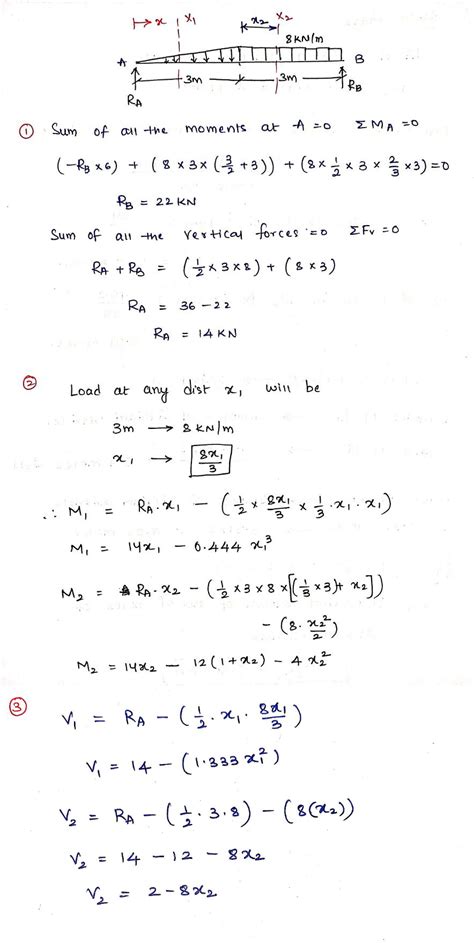 x x₁ x₂ x₂
8KN/m
A B
3m 3m
R_A R_B
① Sum of all the moments at A =0 ΣM_A =0
(-R_B ×6) + (8 × 3 × (3/2 +3)) + (8× 1/2 × 3 × 2/3 ×3)=0
R_B = 22KN
Sum of all the vertical forces =0 ΣF_V =0
R_A + R_B = (1/2 × 3 ×8) + (8 ×3)
R_A = 36 -22
R_A = 14KN
② Load at any dist x₁ will be
3m → 8 KN/m
x₁ → 8x₁/3
∴ M₁ = R_A. x₁ - (1/2 × 8x₁/3 × 1/3 . x₁ . x₁)
M₁ = 14x₁ - 0.444 x₁³
M₂ = R_A. x₂ - (1/2 ×3 × 8 ×[(1/3 ×3)+ x₂])
- (8. x₂²/2)
M₂ = 14x₂ - 12(1+x₂) - 4x₂²
③ V₁ = R_A - (1/2 . x₁ . 8x₁/3)
V₁ = 14 - (1.333 x₁²)
V₂ = R_A - (1/2 . 3.8) - (8(x₂))
V₂ = 14 - 12 - 8x₂
V₂ = 2-8x₂